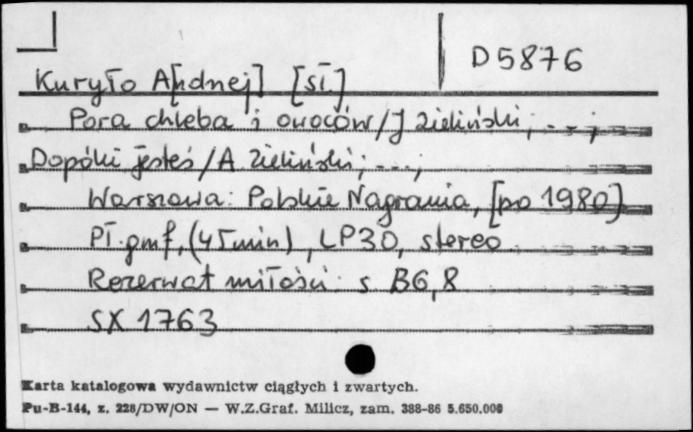 D 5876
Kuryło A[ndrzej] [sł.]
Pora chleba i owoców / J Zieliński; - - -;
Dopóki jesteś / A Zieliński; - - -;
Warszawa: Polskie Nagrania, [po 1980]
Pł. gmf, (45 min), LP30, stereo
Rezerwat miłości s B6,8
SX 1763
Karta katalogowa wydawnictw ciągłych i zwartych.
Pu-B-144, z. 228/DW/ON — W.Z.Graf. Milicz, zam. 388-86 5.650.000